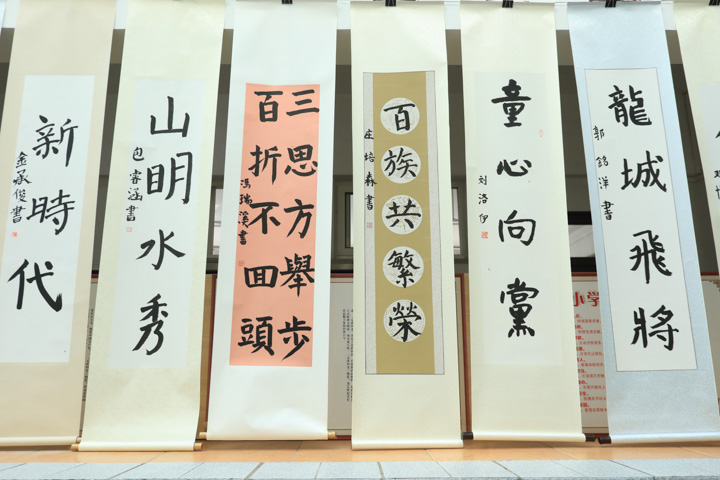 新時代
金承俊書
山明水秀
包睿涵書
三思方舉步
百折不回頭
馮瑞溪書
百族共繁榮
莊培森書
童心向黨
刘洛伊
龍城飛將
郭銘洋書
小学